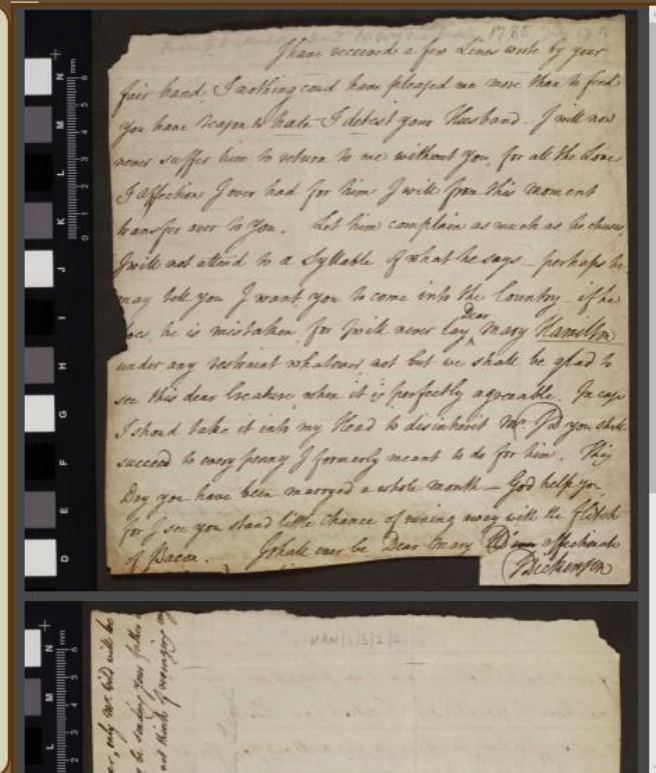 1785
I have received a few Lines wrote by your
fair hand, & nothing coud have pleased me more than to find
you have reason to hate & detest your Husband. I will now
never suffer him to return to me without you, for all the Love
& affection I ever had for him I will from this moment
transfer over to You. Let him complain as much as he chuses,
I will not attend to a Syllable of what he says – perhaps he
may tell you I want you to come into the Country – if he
does, he is mistaken, for I will never lay Dear Mary Hamilton
under any restraint whatever, not but we shall be glad to
see this dear Creature when it is perfectly agreeable. In case
I should take it into my Head to disinherit Mr. you shall
succeed to every penny I formerly meant to do for him. This
Day you have been marryed a whole month – God help you,
for I see you stand little chance of runing away with the flitch
of Bacon. I shall ever be Dear Mary affectionate
Dickenson
HAM/1/3/2/2
only Mr. will be
be sending your father
not think of revenging my